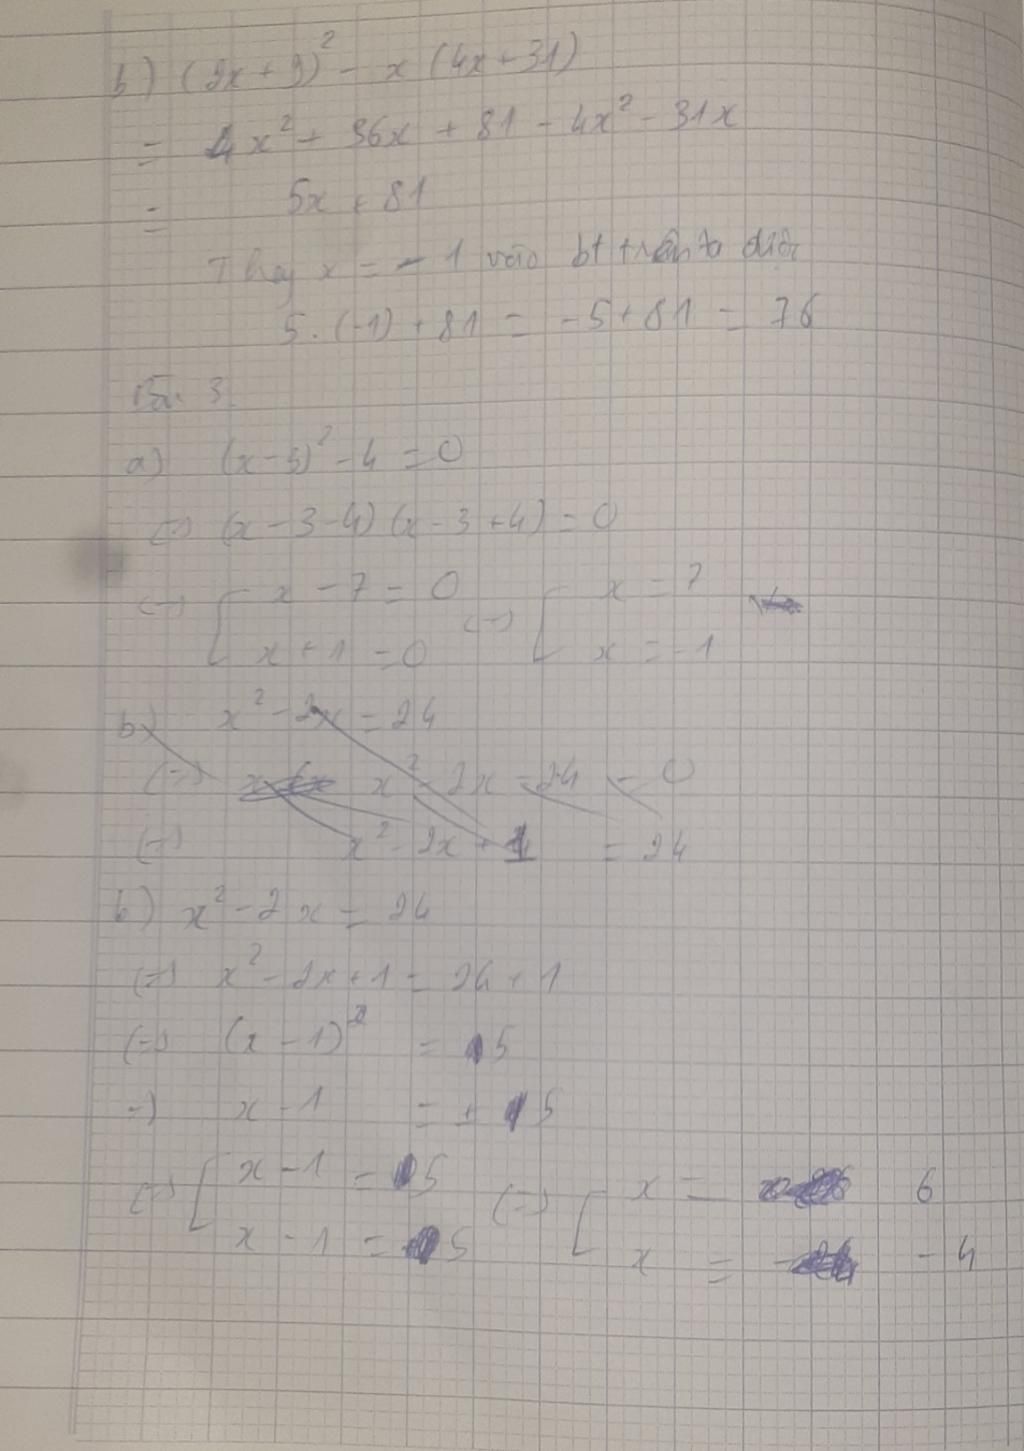 b) (2x + 9)² - x (4x + 31)
= 4x² + 36x + 81 - 4x² - 31x
= 5x + 81
Thay x = - 1 vào bt trên ta được
5. (-1) + 81 = -5 + 81 = 76
Bài 3.
a) (x - 3)² - 4 = 0
(=) (x - 3 - 4) (x - 3 + 4) = 0
(=) [ x - 7 = 0 (=) [ x = 7
x + 1 = 0 x = -1
b) x² - 2x = 24
(=) x² - 2x - 24 = 0
(=) x² - 2x + 1 = 24
b) x² - 2x = 24
(=) x² - 2x + 1 = 24 + 1
(=) (x - 1)² = 5
=) x - 1 = ± 5
(=) [ x - 1 = 5 (=) [ x = 6
x - 1 = 5 x = - 4